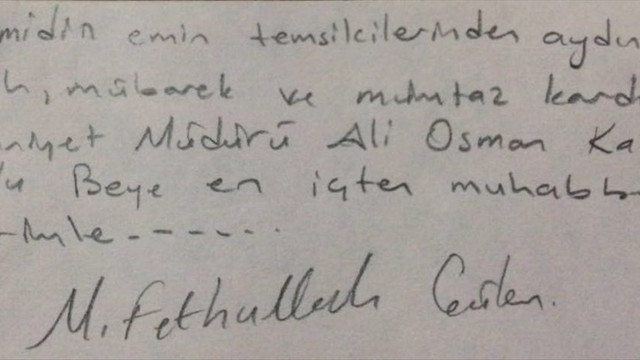 midin emin temsilcilerinden aydın
h, mübarek ve mümtaz kard
niyet Müdürü Ali Osman Ka
lu Beye en içten muhabb-
-imle -------
M. Fethullah Gülen.